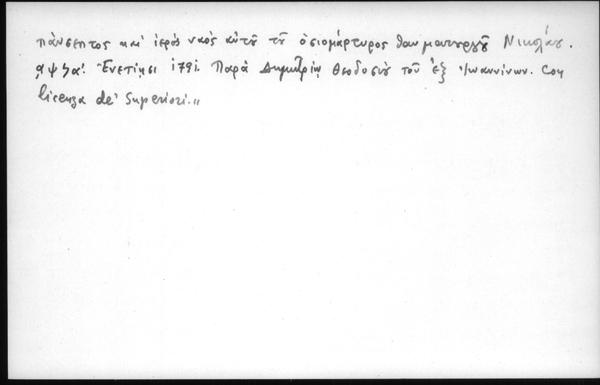 πάνσεπτος καὶ ἱερὸς ναὸς αὐτοῦ τοῦ ὁσιομάρτυρος θαυματουργοῦ Νικολάου.
͵αψϟα΄. Ἐνετίησι 1791. Παρὰ Δημητρίῳ Θεοδοσίου τοῦ ἐξ Ἰωαννίνων. Con
licenza de' Superiori.„